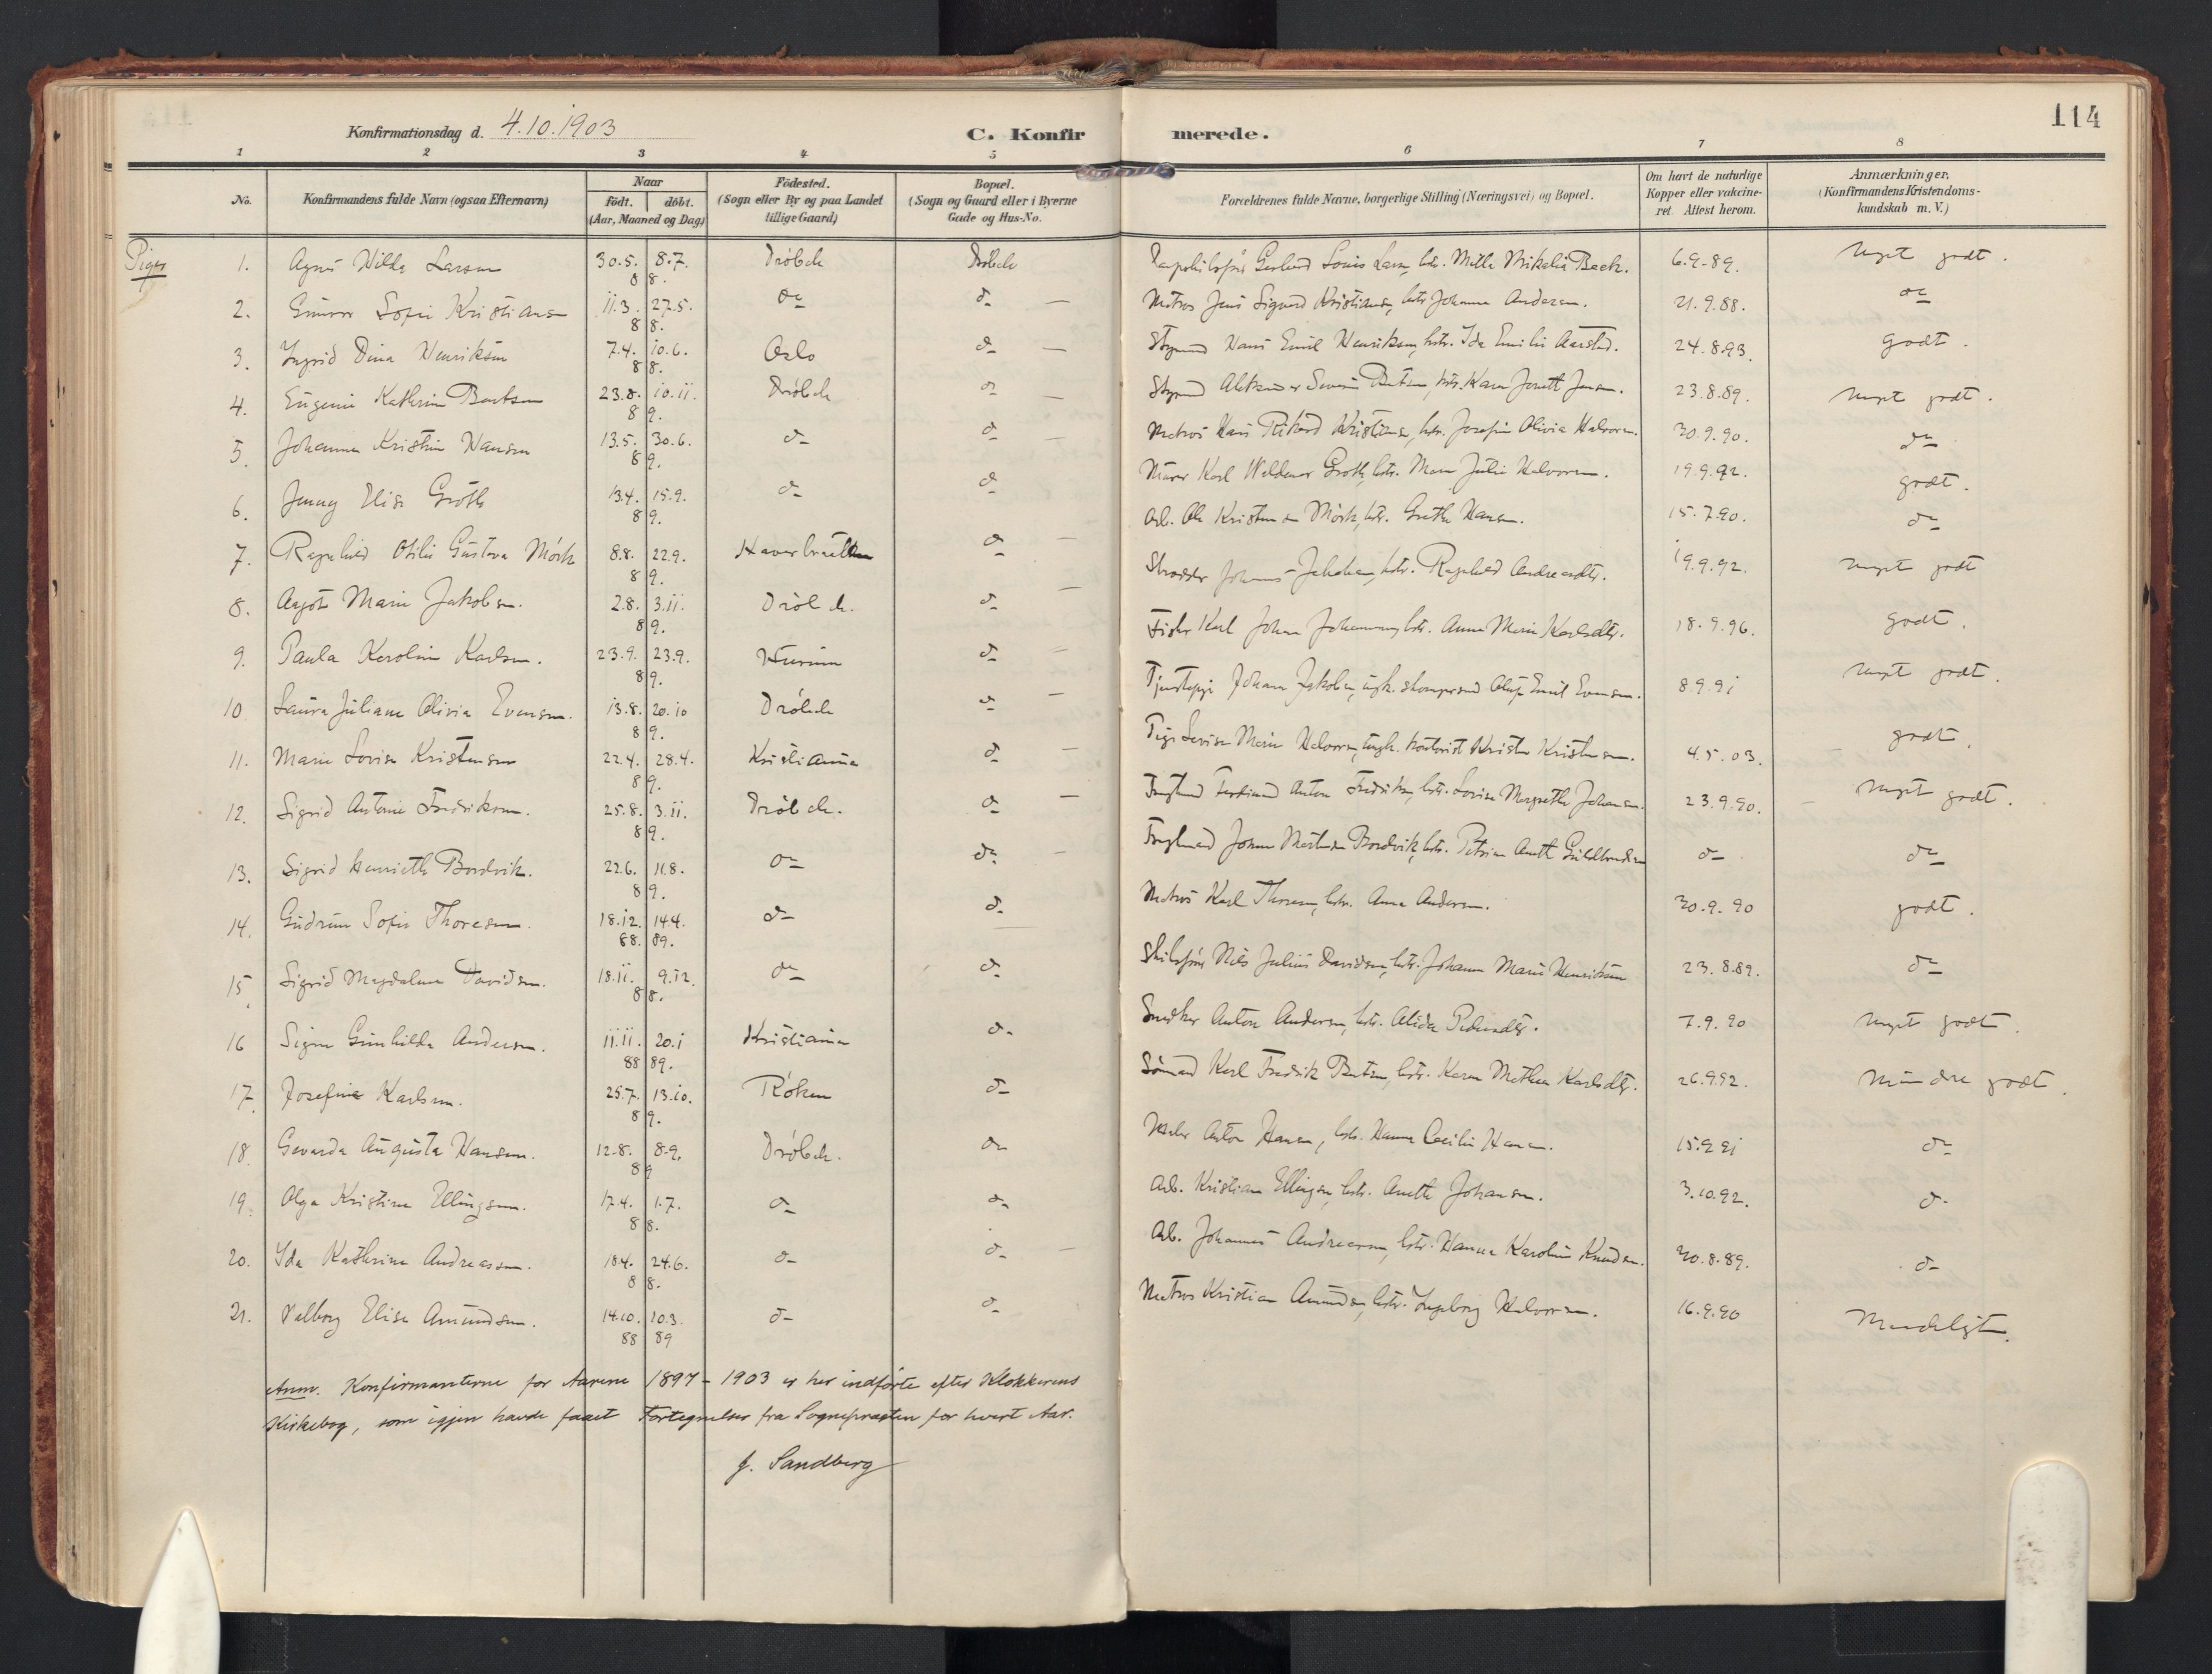 114
Konfirmationsdag d. 4.10.1903
C. Konfirmerede.
1 2 3 4 5 6 7 8
No. Konfirmandens fulde Navn (ogsaa Efternavn) Naar født. døbt. (Aar, Maaned og Dag) Fødested. (Sogn eller By og paa Landet tillige Gaard) Bopæl. (Sogn og Gaard eller i Byerne Gade og Hus-No. Forældrenes fulde Navne, borgerlige Stilling (Næringsvei) og Bopæl. Om havt de naturlige Kopper eller vakcineret. Attest herom. Anmærkninger. (Konfirmandens Kristendomskundskab m. V.)
Piger
1. Agnes Hilda Larsen 30.5. 8.7. 88. Drøbak Drøbak Larsen, hstr. Mikalia Beck. 6.9.89. meget godt.
2. Sofie Kristiansen 11.3. 27.5. 88. do do Matros Jens Sigurd Kristiansen, hstr. Johanne Andersen. 21.9.88. do
3. Ingrid Dina Henriksen 7.4. 10.6. 88. Oslo do Styrmand Hans Emil Henriksen, hstr. Ida Emilie Aarsted. 24.8.93. godt.
4. Eugenie Kathrine Berntsen 23.8. 10.11. 89. Drøbak do Styrmand Severin Berntsen, hstr. Jensen. 23.8.89. meget godt.
5. Johanna Kristine Hansen 13.5. 30.6. 89. do do Matros Hans Rikard Kristiansen, hstr. Josefine Olivia Halvorsen. 30.9.90. do
6. Jenny Elise Groth 13.4. 15.9. 89. do do Murer Karl Waldemar Groth, hstr. Julie Halvorsen. 19.9.92. godt.
7. Ragnhild Otilie Gustava Mørk 8.8. 22.9. 89. Haverbraaten do Arb. Ole Kristensen Mørk, hstr. Grethe Hansen. 15.7.90. do
8. Aagot Marie Jakobsen. 2.8. 3.11. 89. Drøbak. do Skrædder Johannes Jakobsen, hstr. Ragnhild Andreasdtr. 19.9.92. meget godt
9. Paula Karoline Karlsen. 23.9. 23.9. 89. Hurum do Fisker Karl Johan Johannesen, hstr. Anna Marie Karlsdtr. 18.9.96. godt.
10 Laura Juliane Olivia Evensen. 13.8. 20.10 89. Drøbak do Johanne Jakobsen, ugk. Oluf Emil Evensen. 8.9.91 meget godt.
11. Marie Lovise Kristensen 22.4. 28.4. 89. Kristiania do Pige Lovise Marie Halvorsen, ugk. kontorist Kristen Kristensen. 4.5.03. godt.
12. Sigrid Antonie Fredriksen. 25.8. 3.11. 89. Drøbak. do Ferdinand Anton Fredriksen, hstr. Lovise Margrethe Johansen. 23.9.90. meget godt.
13. Sigrid Henriette Bordvik. 22.6. 11.8. 89. do do Johan Bordvik, hstr. Petrine Anette Guldbrandsen do do
14. Gudrun Sofie Thoresen. 18.12. 14.4. 88. 89. do do Matros Karl Thoresen, hstr. Anna Andersen. 30.9.90 godt.
15. Sigrid Magdalene Davidsen. 18.11. 9.12. 88. do do Skibsfører Nils Julius Davidsen, hstr. Johanne Marie Henriksen 23.8.89. do
16 Signe Gunhilda Andersen. 11.11. 20.1 88 89. Kristiania do Snedker Anton Andersen, hstr. Alida Pedersdtr. 7.9.90 meget godt.
17. Josefine Karlsen. 25.7. 13.10. 89. Røken do Sømand Karl Fredrik Berntsen, hstr. Karen Mathea Karlsdtr. 26.9.92. Mindre godt.
18. Gevarda Augusta Hansen. 12.8. 8.9. 89 Drøbak. do Maler Anton Hansen, hstr. Hanna Cecilie Hansen. 15.9.91 do
19. Olga Kristine Ellingsen. 17.4. 1.7. 88. do do Arb. Kristian Ellingsen, hstr. Anette Johansen. 3.10.92. do
20. Ida Kathrine Andreassen. 18.4. 24.6. 88. do do Arb. Johannes Andreassen, hstr. Hanna Karoline Knudsen. 30.8.89. do
21. Valborg Elise Amundsen. 14.10. 10.3. 88 89 do do Matros Kristian Amundsen, hstr. Ingeborg Halvorsen. 16.9.90 Maadeligt.
Anm. Konfirmanterne for Aarene 1897 - 1903 er her indførte efter Klokkerens
Kirkebog, som igjen havde faaet Fortegnelser fra Sognepræsten for hvert Aar.
J. Sandberg